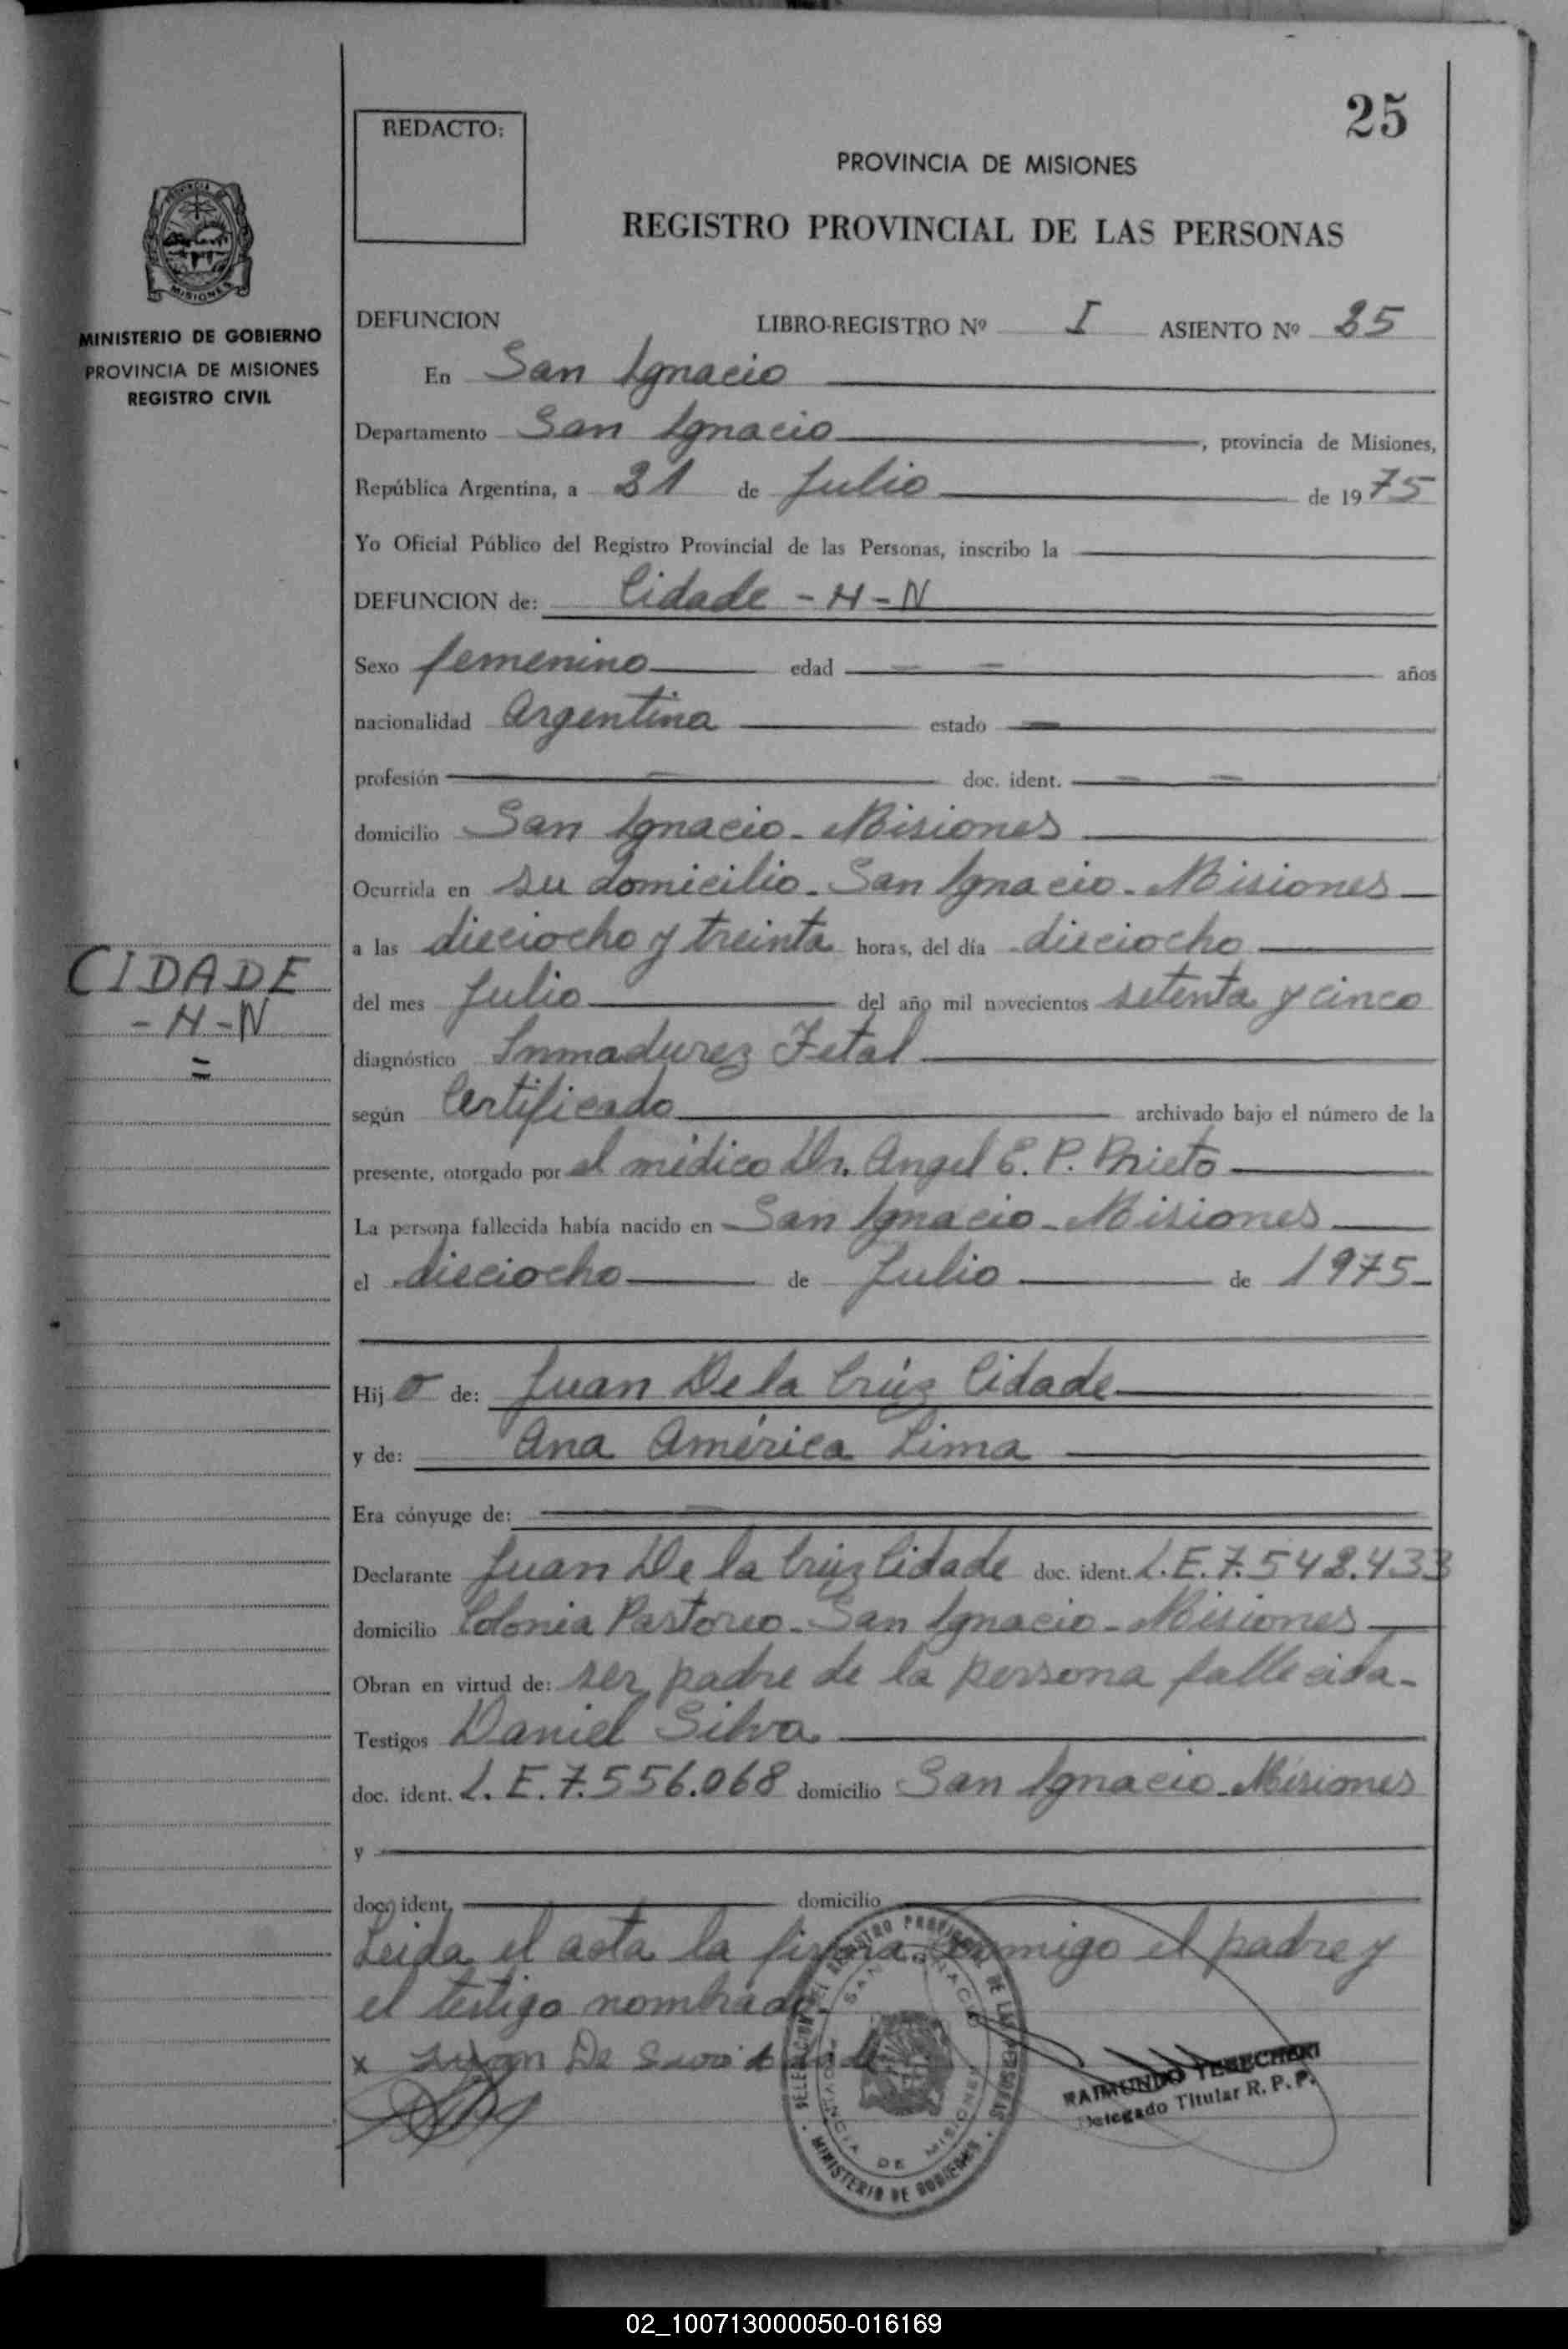 25
REDACTO:
PROVINCIA DE MISIONES
REGISTRO PROVINCIAL DE LAS PERSONAS
MISIONES
MINISTERIO DE GOBIERNO
PROVINCIA DE MISIONES
REGISTRO CIVIL
DEFUNCION LIBRO-REGISTRO Nº I ASIENTO Nº 25
En San Ignacio
Departamento San Ignacio, provincia de Misiones,
República Argentina, a 21 de Julio de 1975
Yo Oficial Público del Registro Provincial de las Personas, inscribo la
DEFUNCION de: Cidade - N - N
Sexo femenino edad - - años
nacionalidad Argentina estado -
profesión - - doc. ident. - -
domicilio San Ignacio - Misiones
Ocurrida en su domicilio - San Ignacio - Misiones
a las dieciocho y treinta horas, del día dieciocho
CIDADE
- N - N
=
del mes Julio del año mil novecientos setenta y cinco
diagnóstico Inmadurez Fetal
según Certificado archivado bajo el número de la
presente, otorgado por el médico Dr. Angel E. P. Prieto
La persona fallecida había nacido en San Ignacio - Misiones
el dieciocho de Julio de 1975
Hijo de: Juan De la Crúz Cidade
y de: Ana América Lima
Era cónyuge de:
Declarante Juan De la Crúz Cidade doc. ident. L.E. 7.548.433
domicilio Colonia Pastoreo - San Ignacio - Misiones
Obran en virtud de: ser padre de la persona fallecida -
Testigos Daniel Silva
doc. ident. L.E. 7.556.068 domicilio San Ignacio - Misiones
y
doc. ident. domicilio
Leida el acta la firma conmigo el padre y
el testigo nombrado.
x Juan De
DE LAS PERSONAS
SAN IGNACIO
PROVINCIA DE MISIONES
MINISTERIO DE GOBIERNO
RAIMUNDO
Delegado Titular R. P. P.
02_100713000050-016169